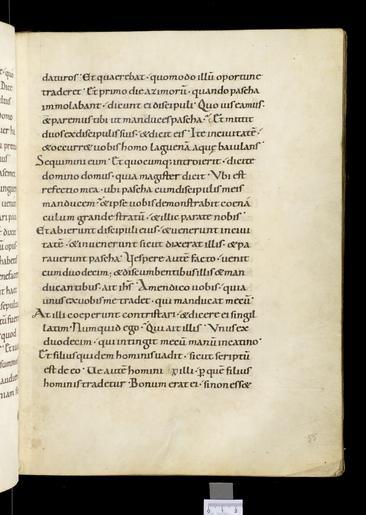 daturos · Et quaerebat · quomodo illū oportune
traderet · Et primo die azimorū · quando pascha
immolabant · dicunt ei discipuli · Quo uis eamus ·
& paremus tibi ut manduces pascha · Et mittit
duos ex discipulis suis · & dicit eis · Ite in ciuitatē ·
& occurr& uobis homo laguenā aquę baiulans ·
Sequimini eum · Et quocumq; introierit · dicite
domino domus · quia magister dicit · Ubi est
refectio mea · ubi pascha cum discipulis meis
manducem · & ipse uobis demonstrabit coenā
culum grande stratū · & illic parate nobis ·
Et abierunt discipuli eius · & uenerunt in ciui
tatē · & inuenerunt sicut dixerat illis · & pa
rauerunt pascha · Uespere autē facto · uenit
cum duodecim · & discumbentibus illis & man
ducantibus · ait ihs · Amen dico uobis · quia
unus ex uobis me tradet · qui manducat mecū ·
At illi coeperunt contristari · & dicere ei singil
latim · Numquid ego · Qui ait illis · Unus ex
duodecim · qui intingit mecū manū in catino ·
Et filius quidem hominis uadit · sicut scriptū
est de eo · Uae autē homini illi · p quē filius
hominis tradetur · Bonum erat ei · si non ess&